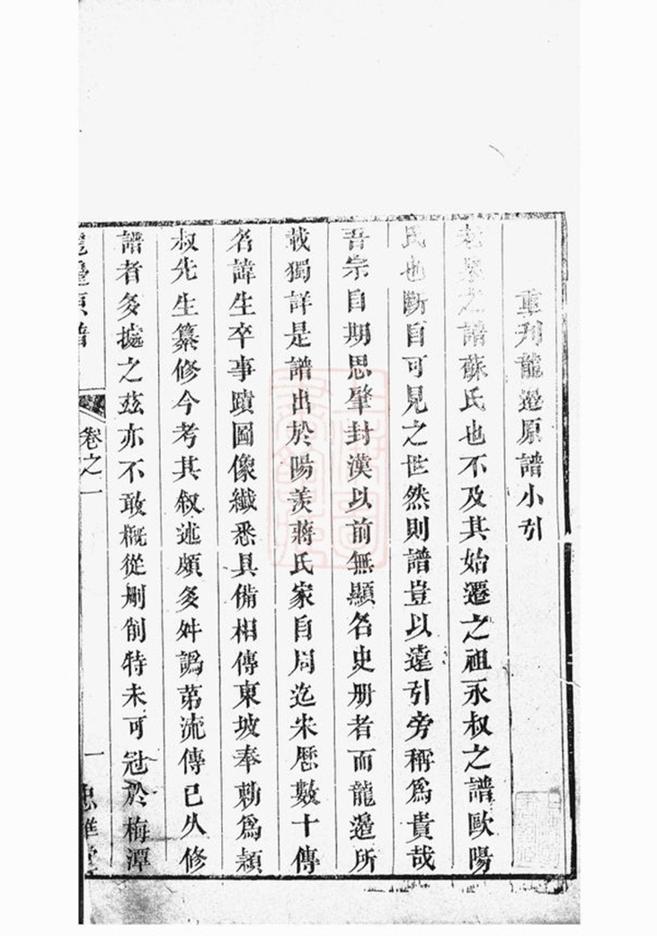 重刊龍邉原譜小引
老泉之譜蘇氏也不及其始遷之祖永叔之譜歐陽
氏也斷自可見之世然則譜豈以遠引旁稱爲貴哉
吾宗自期思肇封漢以前無顯名史册者而龍邉所
載獨詳是譜出於陽羨蔣氏家自周迄宋歷數十傳
名諱生卒事蹟圖像纖悉具備相傳東坡奉勅爲頴
叔先生纂修今考其叙述頗多舛譌第流傳已久修
譜者多據之茲亦不敢概從刪削特未可冠於梅潭
龍邉原譜
卷之一
一